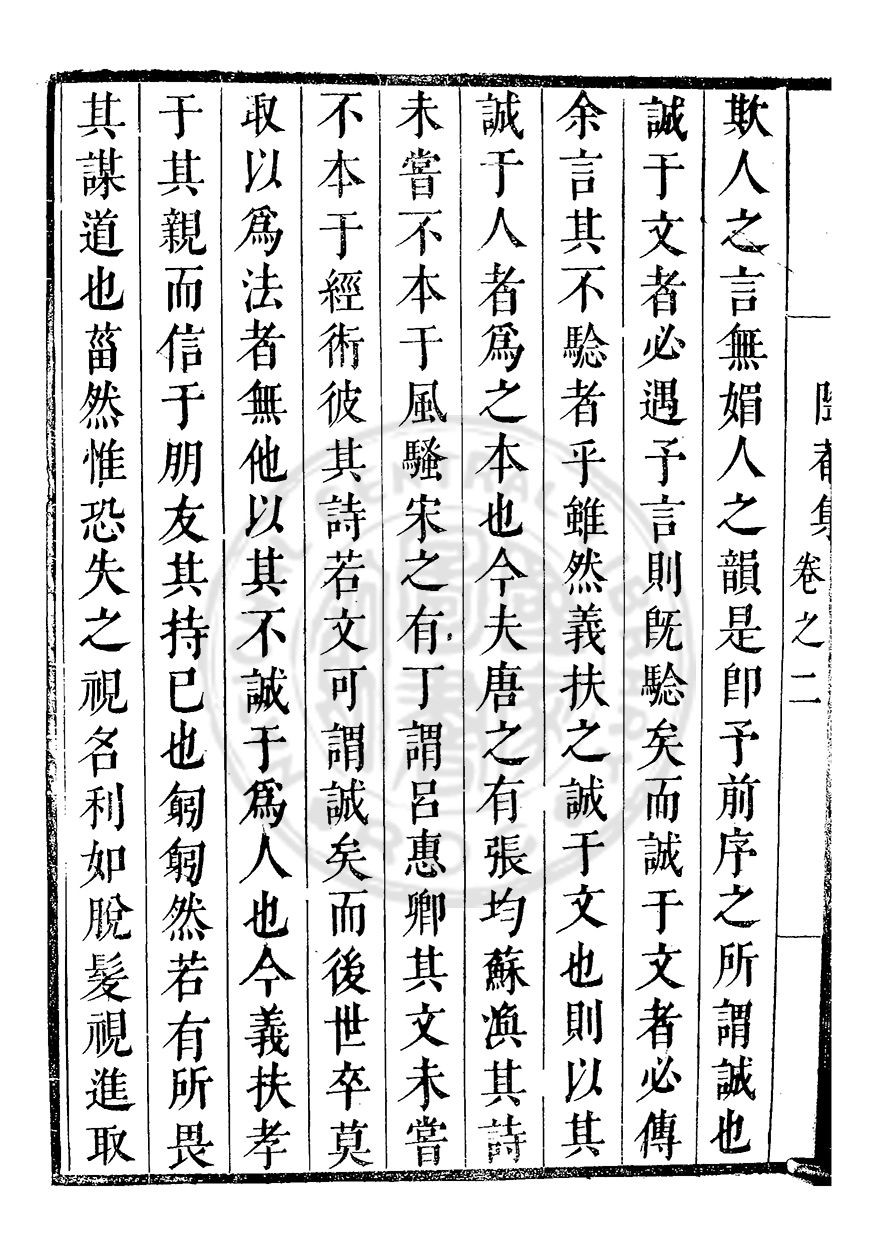 卷之二
欺人之言無媚人之韻是卽予前序之所謂誠也
誠于文者必遇予言則旣驗矣而誠于文者必傳
余言其不騐者乎雖然義扶之誠于文也則以其
誠于人者爲之本也今夫唐之有張均蘇渙其詩
未嘗不本于風騷宋之有丁謂呂惠卿其文未嘗
不本于經術彼其詩若文可謂誠矣而後世卒莫
取以爲法者無他以其不誠于爲人也今義扶孝
于其親而信于朋友其持已也匑匑然若有所畏
其謀道也葘然惟恐失之視名利如脫髮視進取